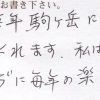 お書き下さい。
年駒ヶ岳に
くれます。私は
ずに毎年の楽